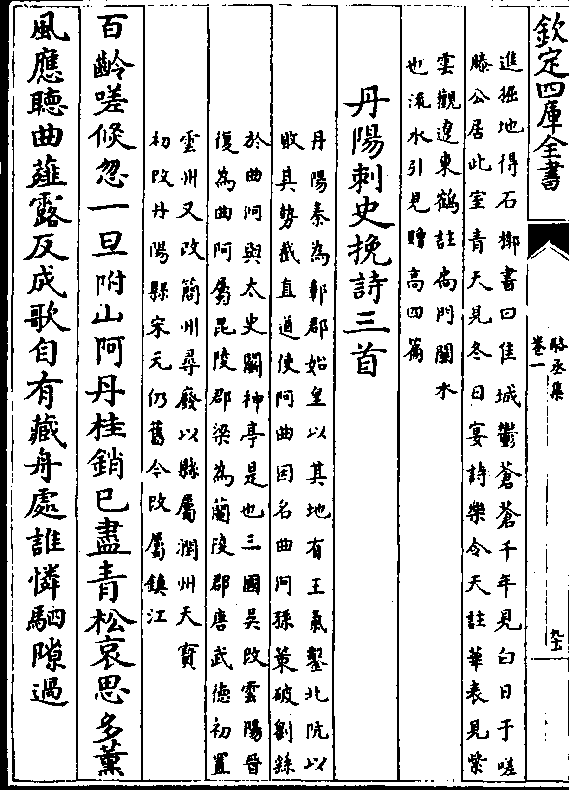 欽定四庫全書
駱丞集
卷一
進掘地得石槨書曰佳城鬱蒼蒼千年見白日于嗟
滕公居此室青天見冬日宴詩樂令天註華表見紫
雲觀遼東鶴註尚門閫水
也流水引見贈高四篇
丹陽刺史挽詩三首
丹陽秦為鄣郡始皇以其地有王氣鑿北阬以
敗其勢截直道使阿曲因名曲阿孫策破劉繇
於曲阿與太史鬭神亭是也三國吳改雲陽晉
復為曲阿屬毘陵郡梁為蘭陵郡唐武德初置
雲州又改簡州尋廢以縣屬潤州天寳
初改丹陽縣宋元仍舊今改屬鎮江
百齡嗟倏忽一旦附山阿丹桂銷已盡青松哀思多薰
風應聽曲薤露反成歌自有藏舟處誰憐駟隙過